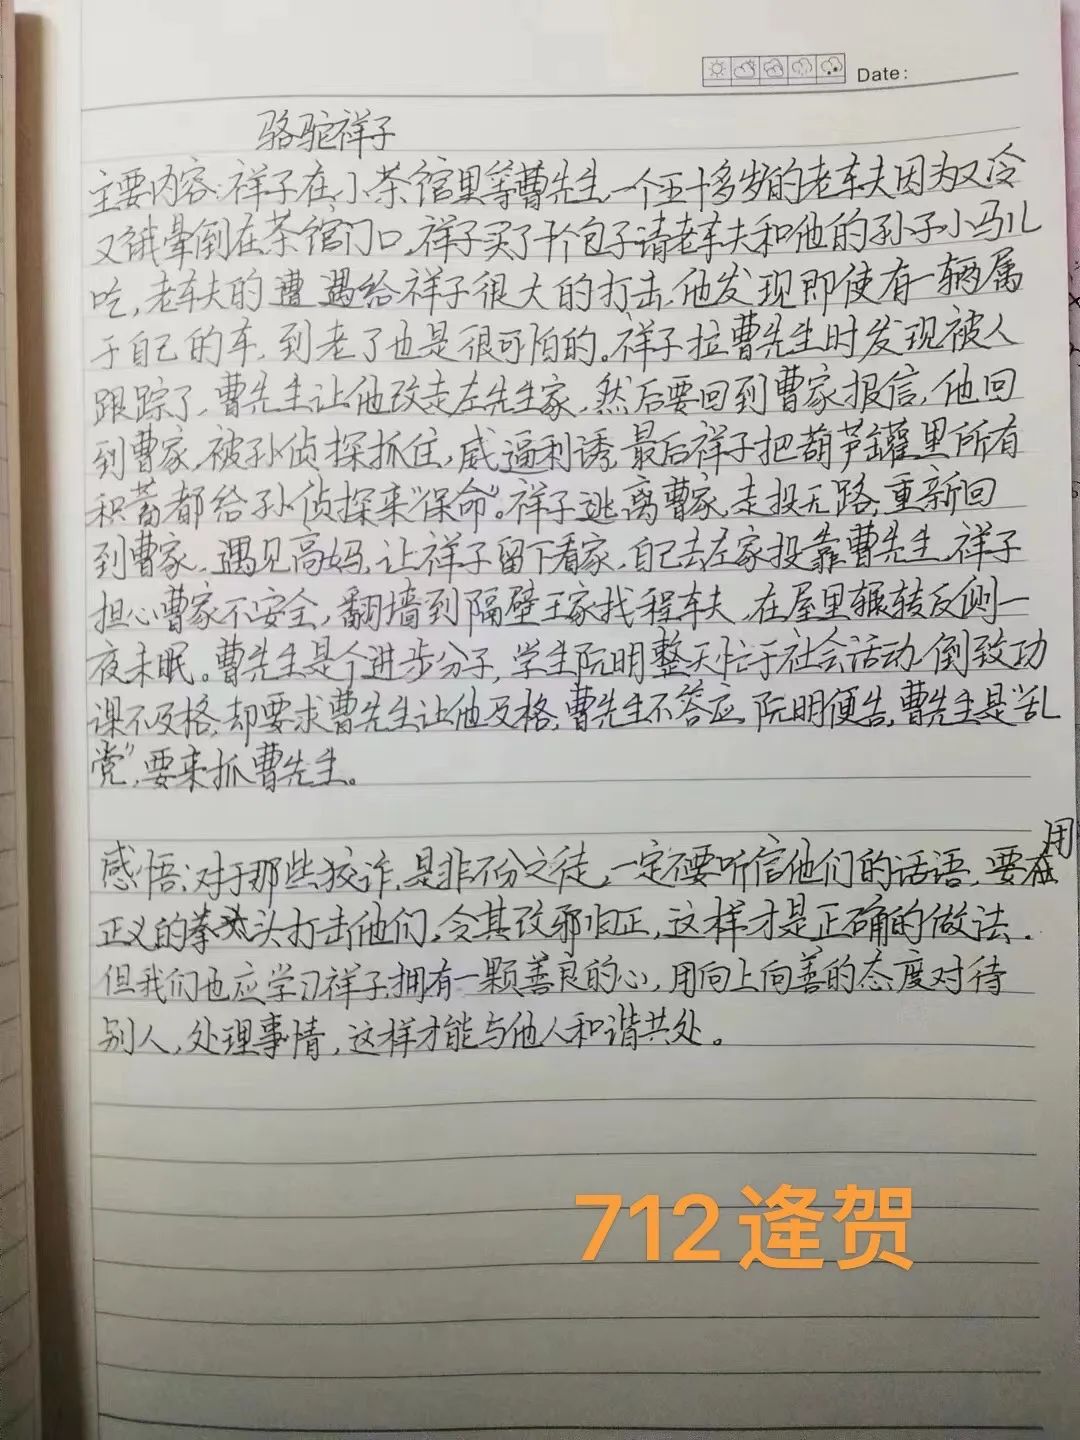 Date:
骆驼祥子
主要内容:祥子在小茶馆里等曹先生,一个五十多岁的老车夫因为又冷
又饿晕倒在茶馆门口,祥子买了十个包子请老车夫和他的孙子小马儿
吃,老车夫的遭遇给祥子很大的打击,他发现即使有一辆属
于自己的车,到老了也是很可怕的。祥子拉曹先生时发现被人
跟踪了,曹先生让他改走左先生家,然后要回到曹家报信,他回
到曹家,被孙侦探抓住,威逼利诱,最后祥子把葫芦罐里所有
积蓄都给孙侦探来"保命"。祥子逃离曹家,走投无路,重新回
到曹家,遇见高妈,让祥子留下看家,自己去左家投靠曹先生,祥子
担心曹家不安全,翻墙到隔壁王家找程车夫,在屋里辗转反侧一
夜未眠。曹先生是个进步分子,学生阮明整天忙于社会活动,倒致功
课不及格,却要求曹先生让他及格,曹先生不答应,阮明便告,曹先生是"乱
党",要来抓曹先生。
感悟:对于那些狡诈,是非不分之徒,一定不要听信他们的话语,要用
正义的拳头打击他们,令其改邪归正,这样才是正确的做法.
但我们也应学习祥子,拥有一颗善良的心,用向上向善的态度对待
别人,处理事情,这样才能与他人和谐共处。
712逢贺